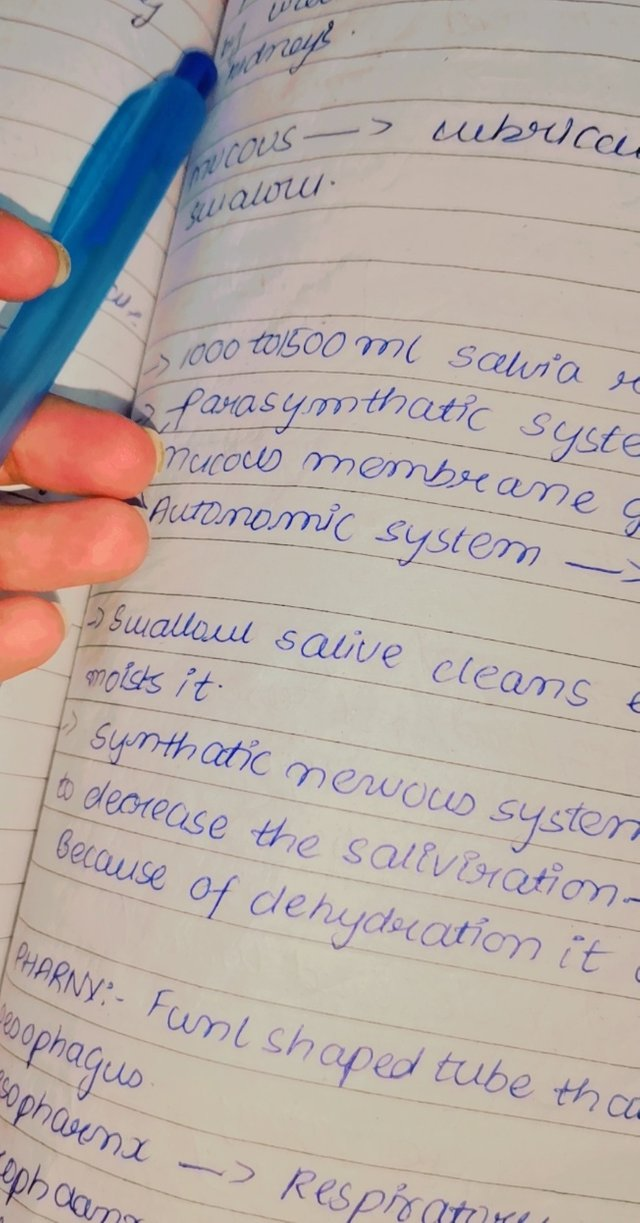 kidneys.
mucous —> lubrica
swalow.
-> 1000 to 1500 ml salvia r
-> parasymthatic syste
mucous membrane g
Autonomic system —>
-> Swallow salive cleans
moists it.
-> Synthatic nervous system
to decrease the saliviration-
Because of dehydration it
PHARNY:- Funl shaped tube tha
oesophagus
sopharnx —> Respiratory